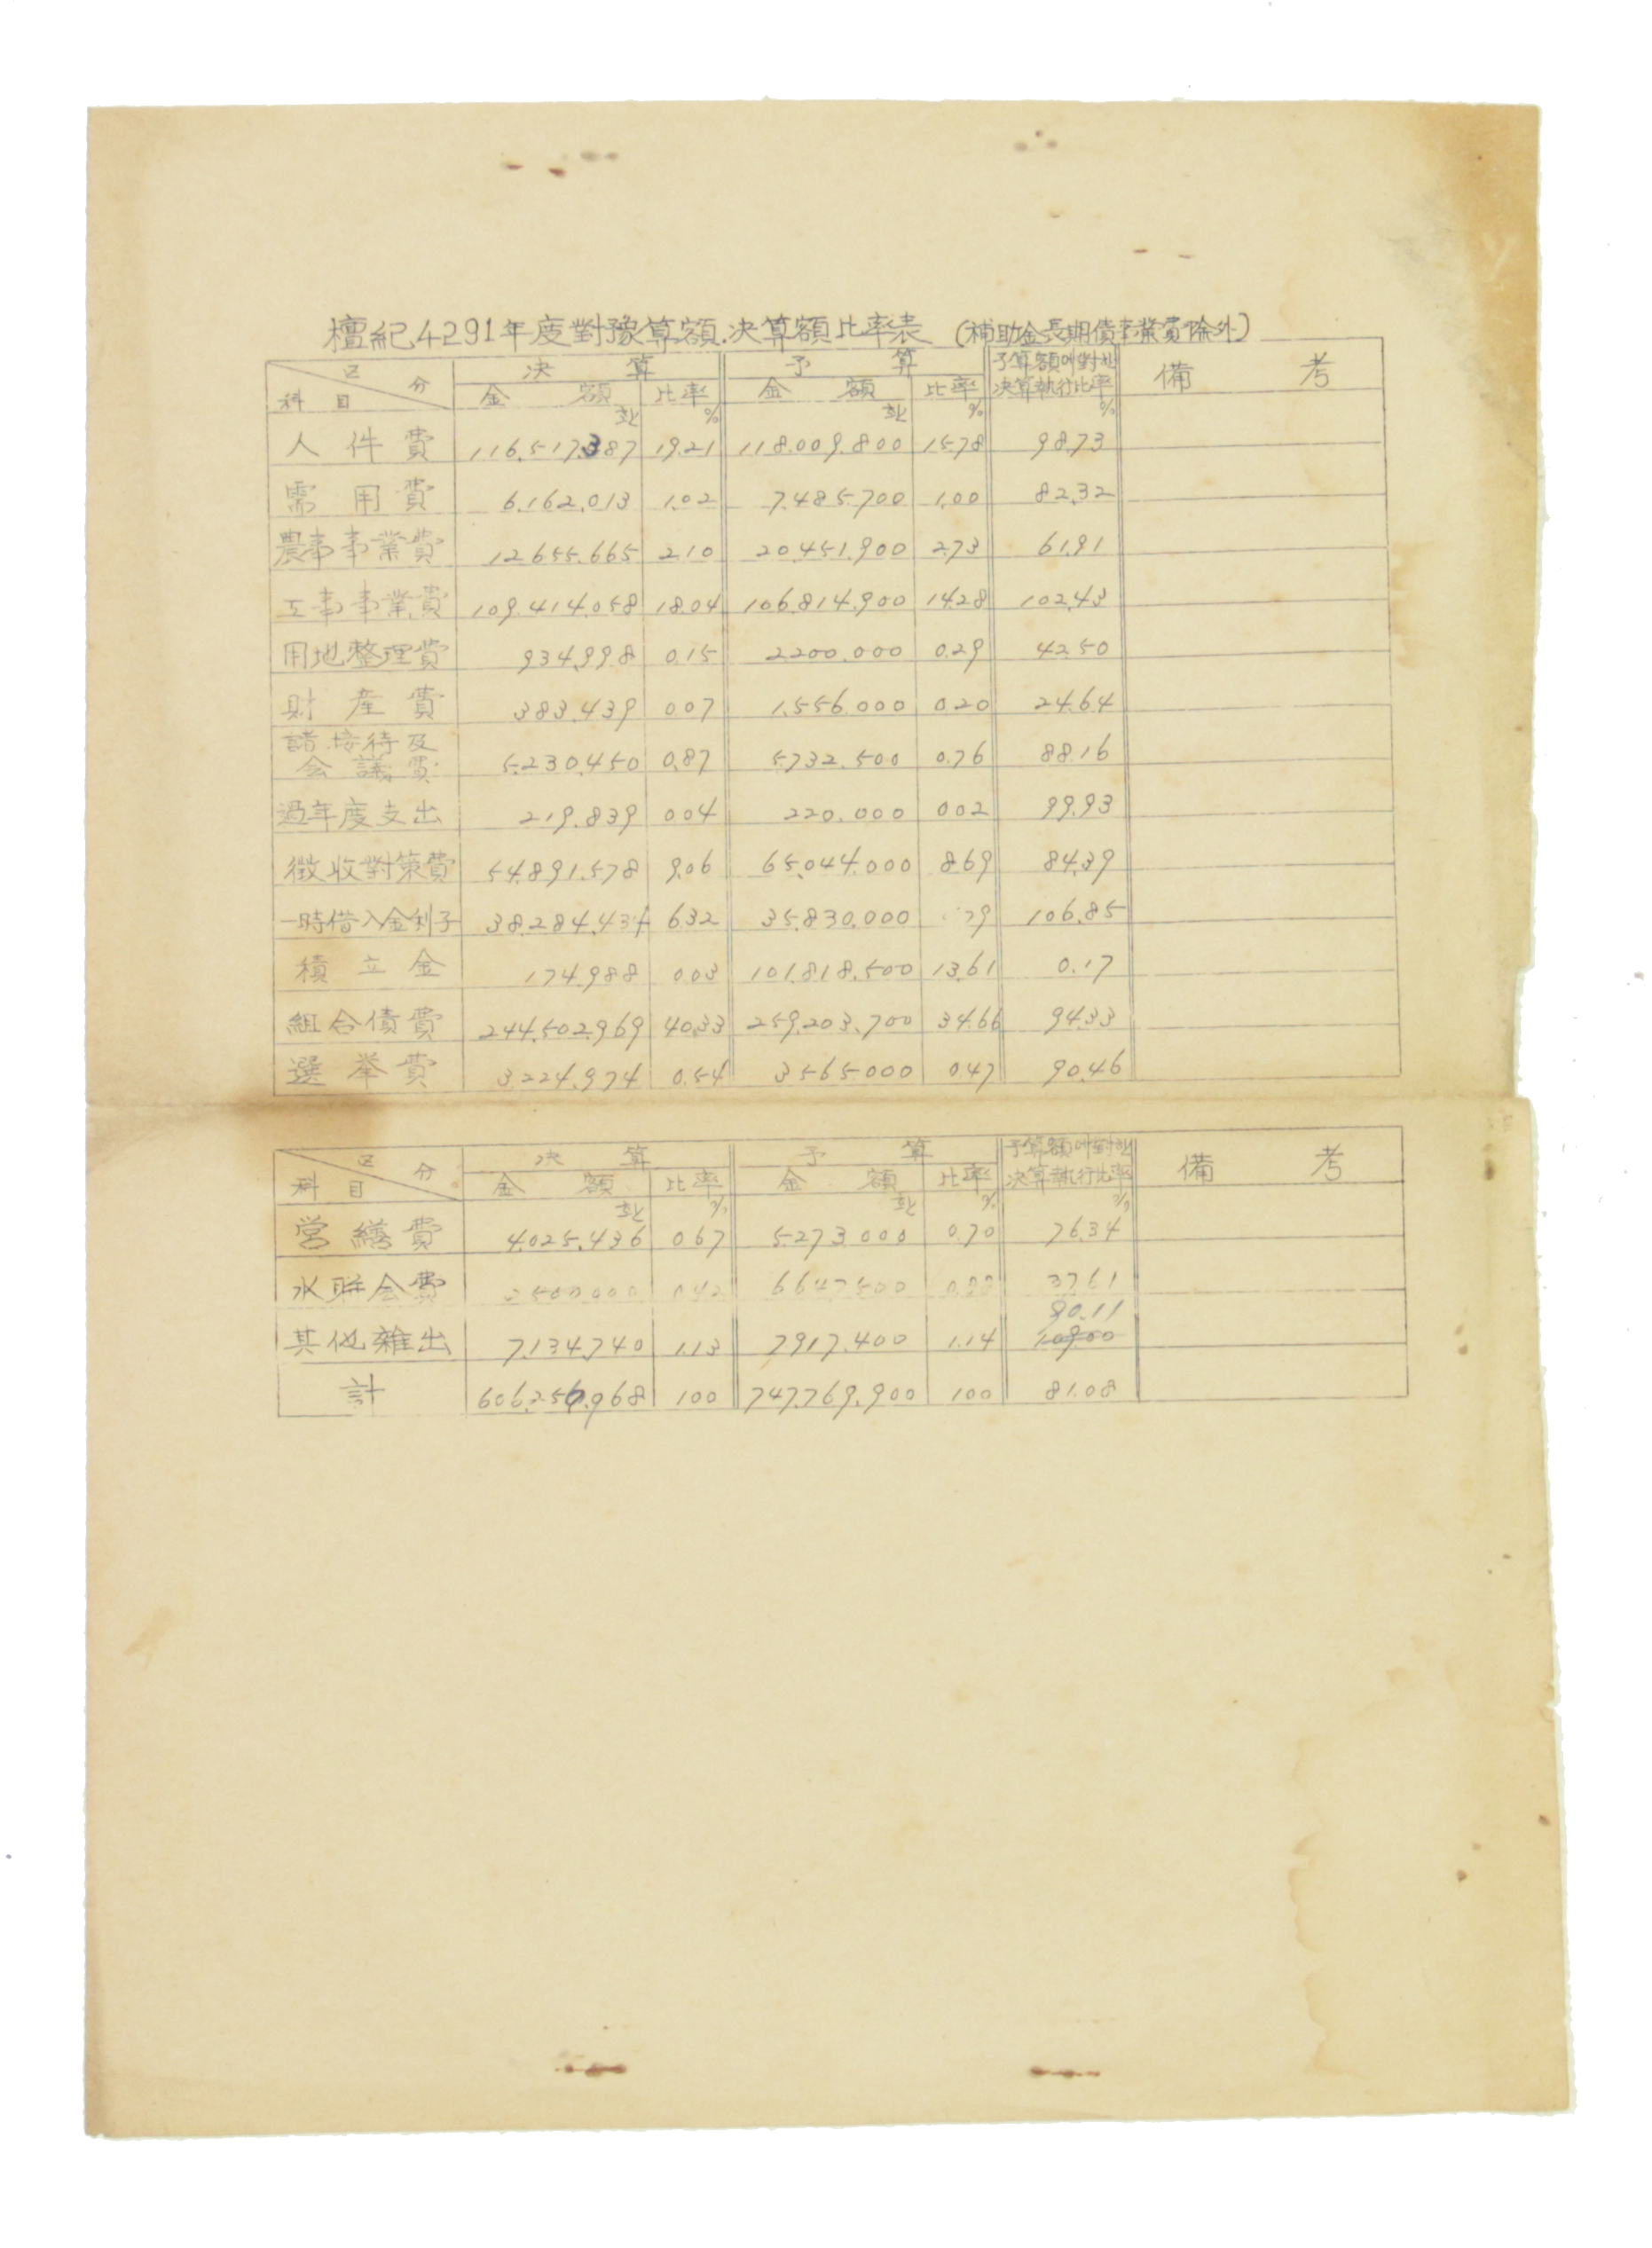 檀紀4291年度對豫算額.決算額比率表 (補助金長期債事業費除外)
区 分 決 算 予 算 予算額에對한 備 考
科 目 金 額 比率 金 額 比率 決算執行比率
% % %
人件費 116.517.387 19.21 118.009.800 15.78 98.73
需用費 6.162.013 1.02 7.485.700 1.00 82.32
農事事業費 12.655.665 2.10 20.451.900 2.73 61.91
工事事業費 109.414.058 18.04 106.814.900 14.28 102.43
用地整理費 934.998 0.15 2200.000 0.29 42.50
財産費 383.439 0.07 1.556.000 0.20 24.64
諸接待及
会議費 5.230.450 0.87 5.732.500 0.76 88.16
過年度支出 219.839 0.04 220.000 0.02 99.93
徴收對策費 54.891.578 9.06 65.044.000 8.69 84.39
一時借入金利子 38.284.434 6.32 35.830.000 106.85
積立金 174.988 0.03 101.818.500 13.61 0.17
組合債費 244.502.969 40.33 259.203.700 34.66 94.33
選挙費 3.224.974 0.54 3.565.000 0.47 90.46
区 分 決 算 予 算 予算額에對한 備 考
科 目 金 額 比率 金 額 比率 決算執行比率
% % %
営繕費 4.025.436 0.67 5.273.000 0.70 76.34
水聯会費 2.500.000 0.42 6.647.500 37.61
90.11
其他雜出 7.134.740 1.13 7.917.400 1.14
計 606.256.968 100 747.769.900 100 81.08